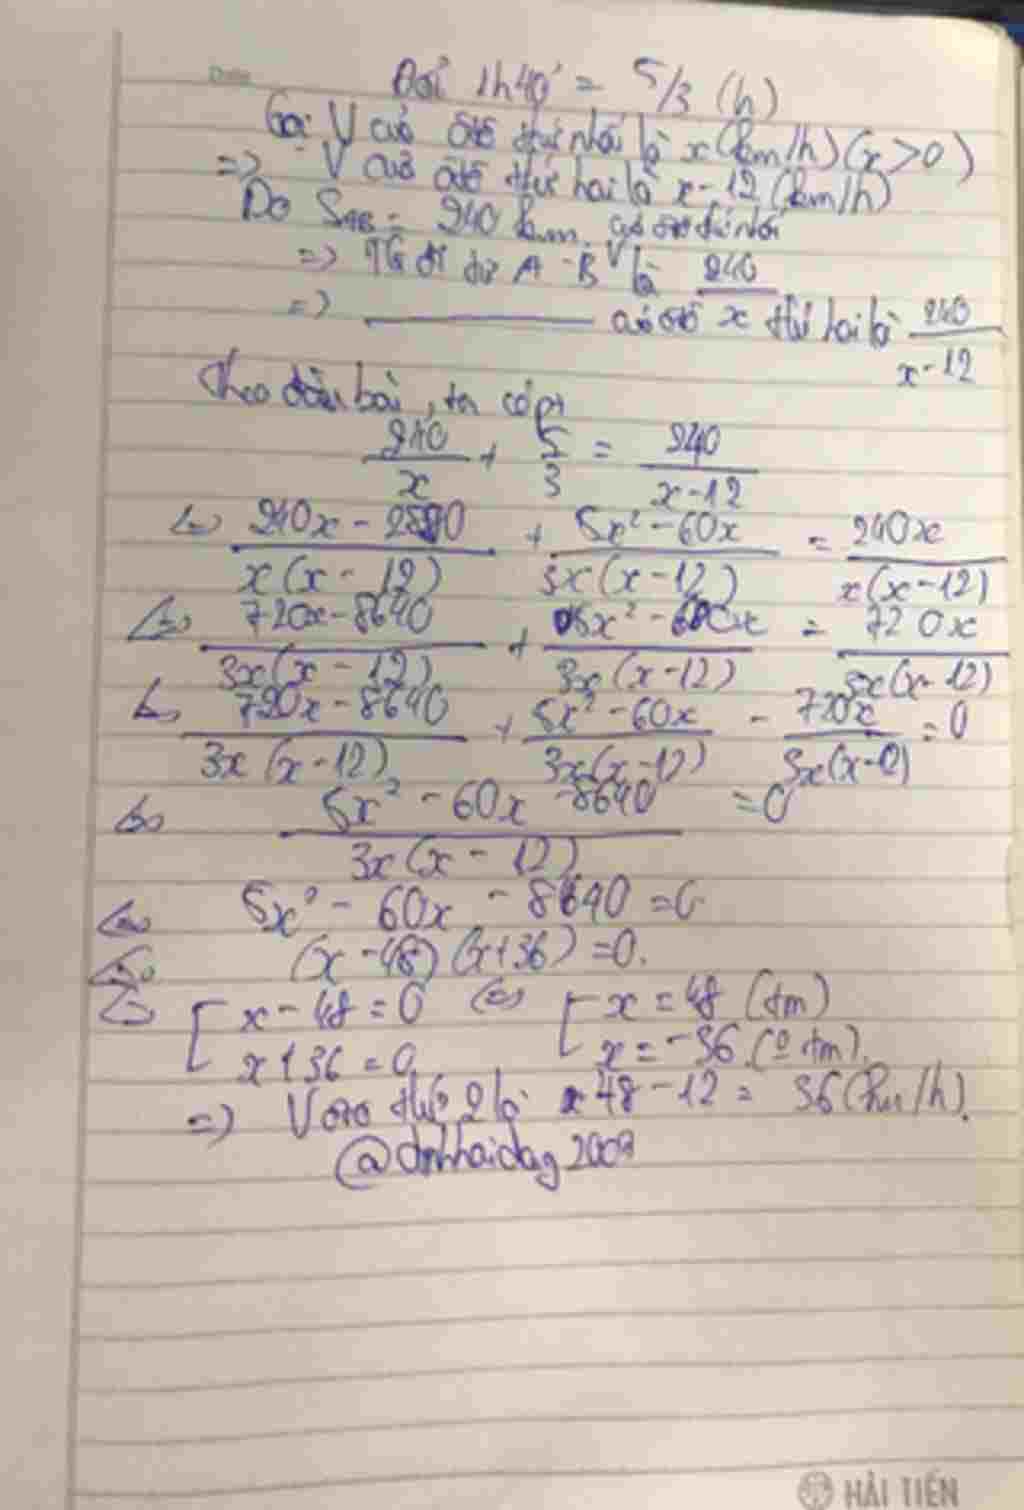 Date
Đổi 1h40' = 5/3 (h)
Gọi V của ôtô thứ nhất là x (km/h) (x > 0)
=> V của ôtô thứ hai là x - 12 (km/h)
Do SAB = 240 km. của ôtô thứ nhất
=> TG đi từ A - B là 240
=> của ôtô x thứ hai là 240/(x - 12)
Theo đầu bài, ta có pt
240/x + 5/3 = 240/(x - 12)
<=> (240x - 2880)/(x(x - 12)) + (5x² - 60x)/(3x(x - 12)) = 240x/(x(x - 12))
<=> (720x - 8640)/(3x(x - 12)) + (5x² - 60x)/(3x(x - 12)) = 720x/(3x(x - 12))
<=> (720x - 8640)/(3x(x - 12)) + (5x² - 60x)/(3x(x - 12)) - 720x/(3x(x - 12)) = 0
<=> (5x² - 60x - 8640)/(3x(x - 12)) = 0
<=> 5x² - 60x - 8640 = 0
<=> (x - 48)(x + 36) = 0.
<=> [ x - 48 = 0 <=> [ x = 48 (tm)
x + 36 = 0 x = -36 (0 tm).
=> V oto thứ 2 là 48 - 12 = 36 (km/h).
HẢI TIẾN